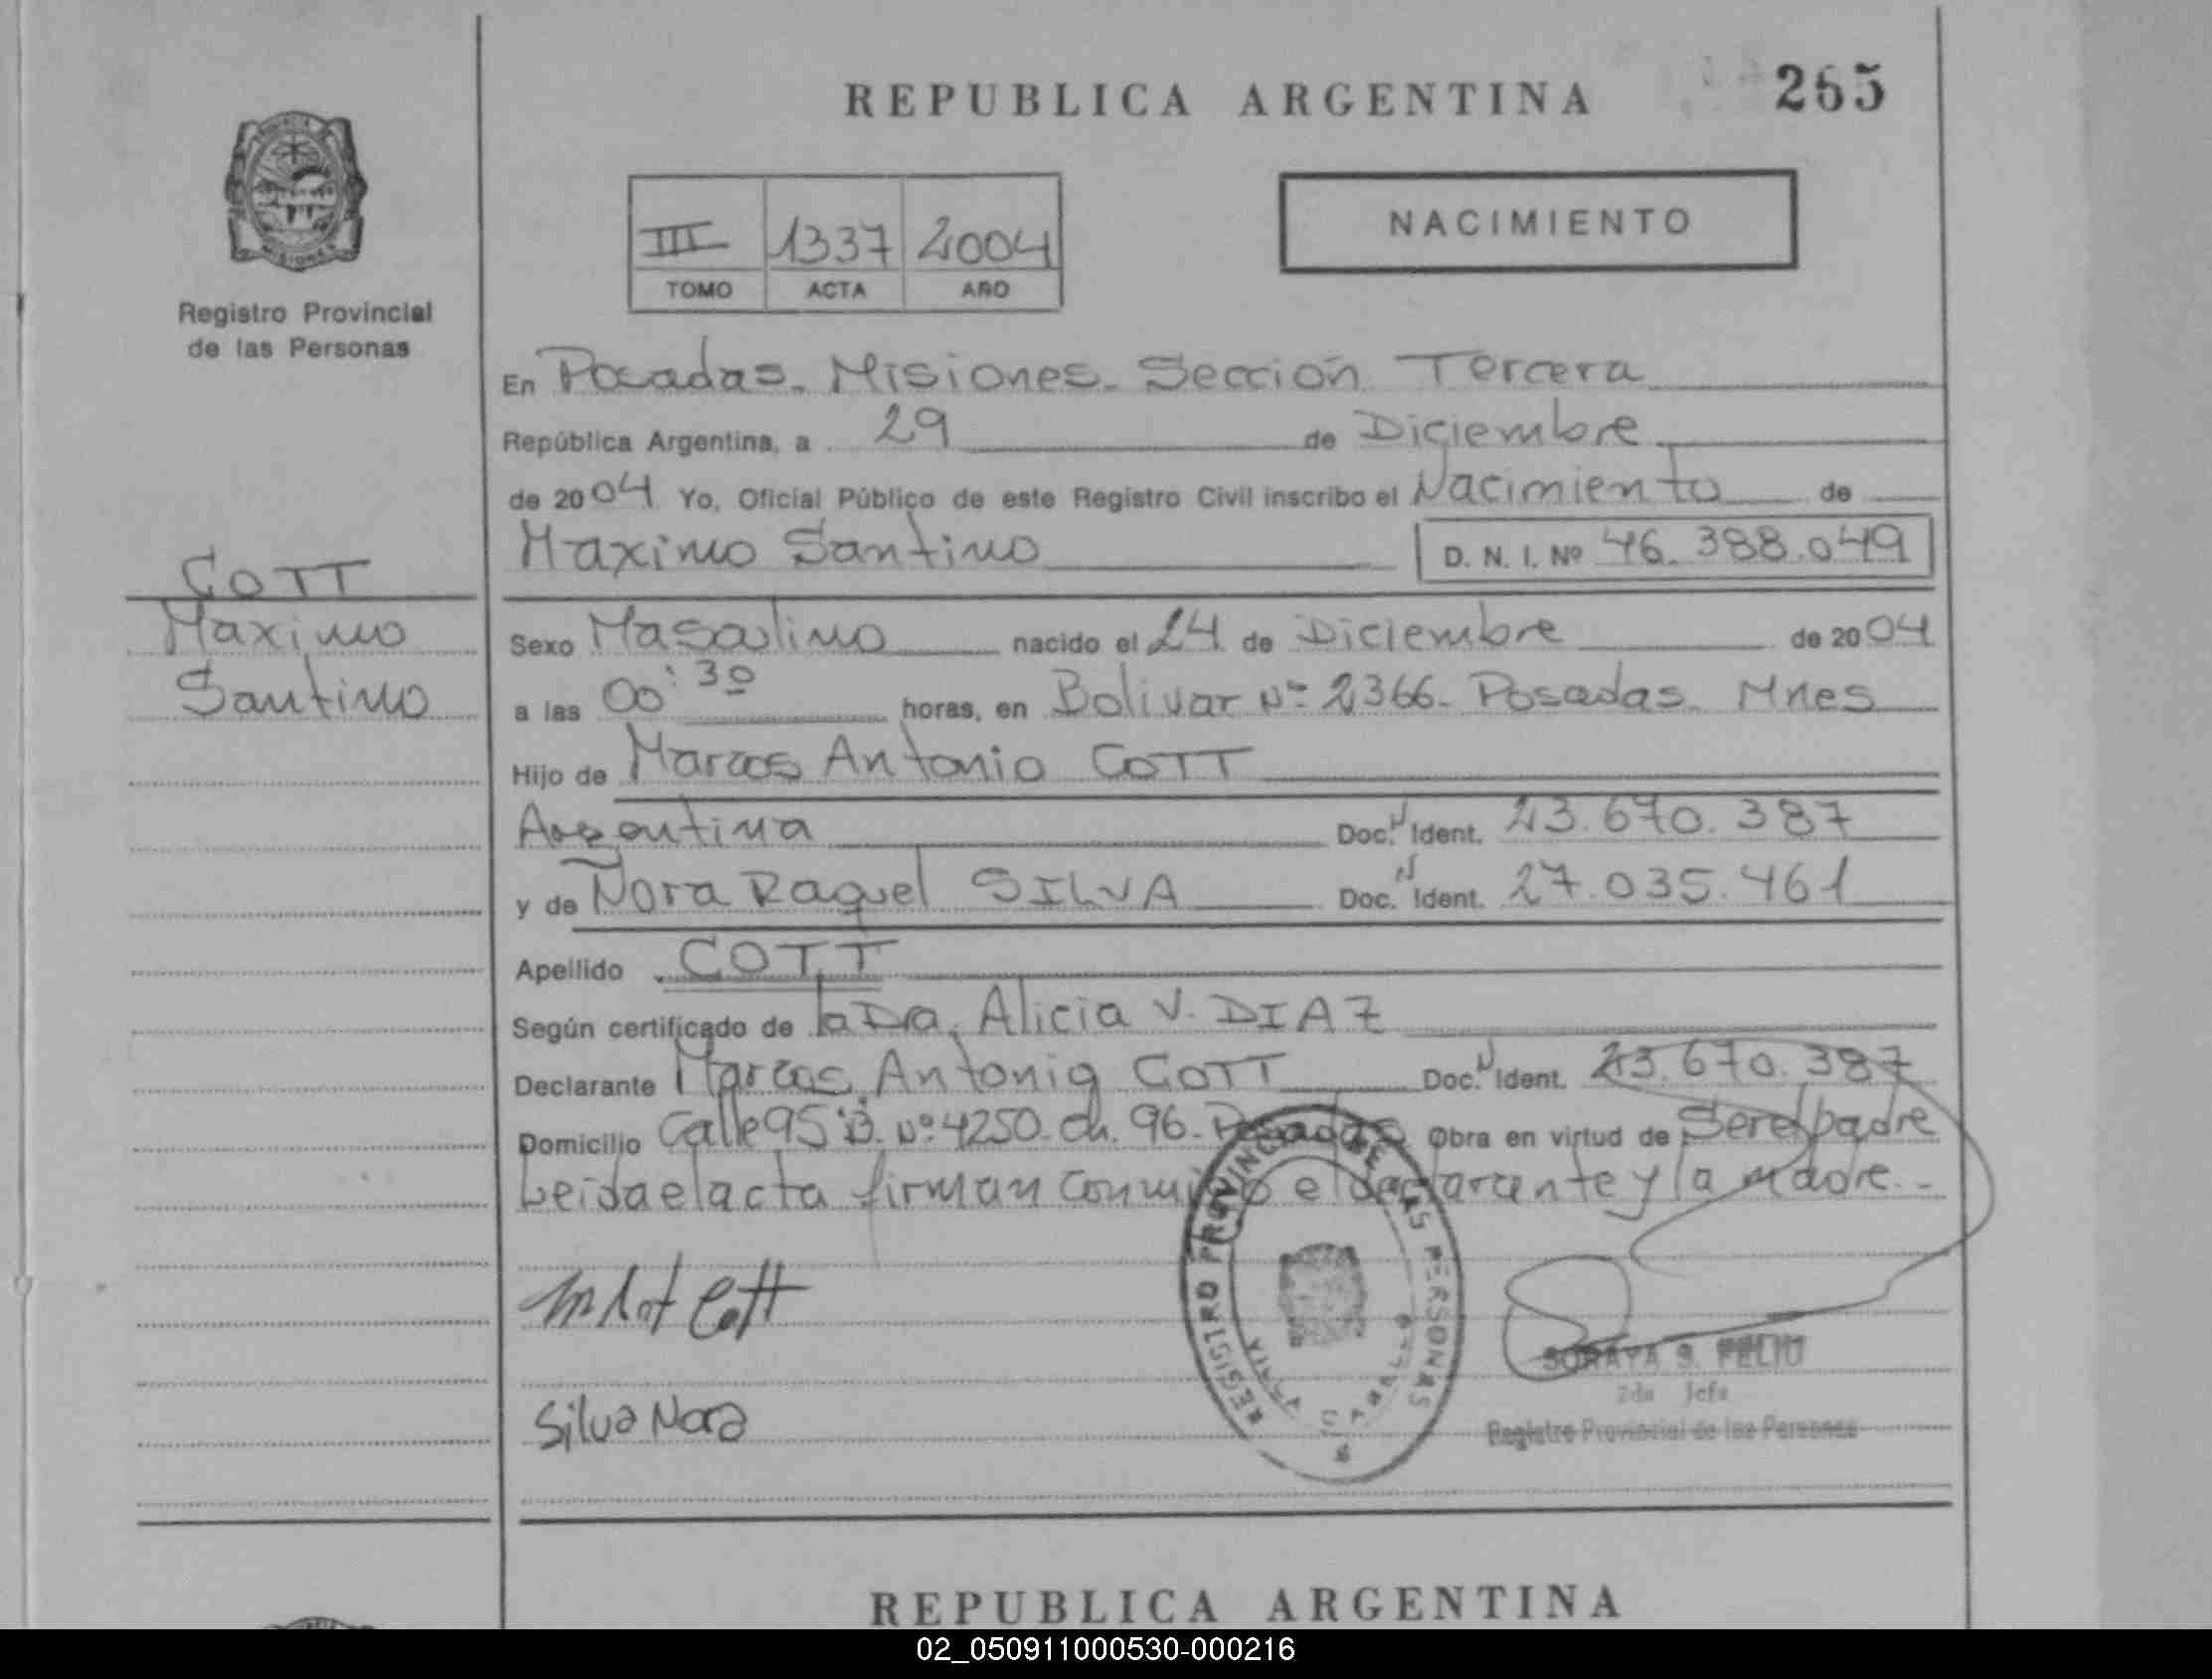 REPUBLICA ARGENTINA
265
NACIMIENTO
III 1337 2004
TOMO ACTA AÑO
Registro Provincial
de las Personas
En Posadas - Misiones - Sección Tercera
República Argentina, a 29 de Diciembre
de 2004 Yo, Oficial Público de este Registro Civil inscribo el Nacimiento de
Maximo Santino D. N. I. Nº 46.388.049
COTT
Maximo
Santino
Sexo Masculino nacido el 24 de Diciembre de 2004
a las 00:30 horas, en Bolivar Nº 2366 - Posadas - Mnes
Hijo de Marcos Antonio COTT
Argentina Doc. N Ident. 23.670.387
y de Nora Raquel SILVA Doc. N Ident. 27.035.461
Apellido COTT
Según certificado de la Dra. Alicia V. DIAZ
Declarante Marcos Antonio COTT Doc. N Ident. 23.670.387
Domicilio Calle 95 B. Nº 4250 - Ch. 96 - Posadas Obra en virtud de Ser el padre
Leida el acta firman conmigo el declarante y la madre. -
Cott
Silva Nora
REGISTRO PROVINCIAL DE LAS PERSONAS
SORAYA S. FELIU
2da Jefa
Registro Provincial de las Personas
REPUBLICA ARGENTINA
02_050911000530-000216